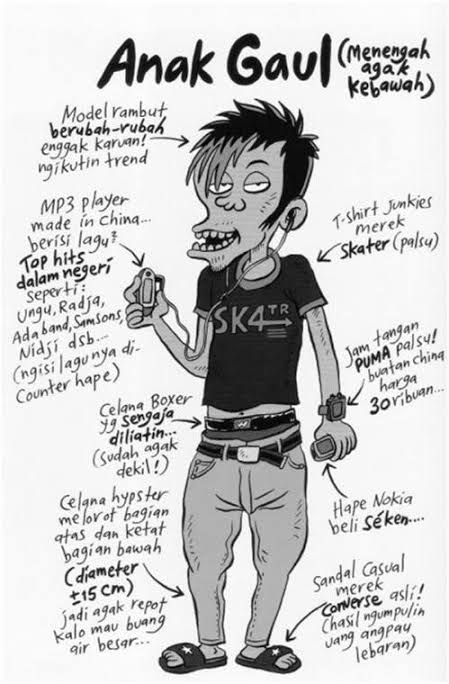 Anak Gaul
(Menengah
agak
kebawah)
Model rambut
berubah-rubah
enggak karuan!
ngikutin trend
MP3 player
made in China...
berisi lagu²
Top hits
dalam negeri
seperti:
Ungu, Radja,
Adaband, Samsons,
Nidji dsb...
(ngisi lagunya di-
Counter hape)
T-shirt Junkies
merek
Skater (palsu)
SK4TR
Jam tangan
PUMA palsu!
buatan China
harga
30 ribuan...
Celana Boxer
yg sengaja
diliatin...
(sudah agak
dekil!)
Hape Nokia
beli séken....
Celana hypster
melorot bagian
atas dan ketat
bagian bawah
(diameter
±15 cm)
jadi agak repot
kalo mau buang
air besar...
Sandal Casual
merek
Converse asli!
(hasil ngumpulin
uang angpau
lebaran)